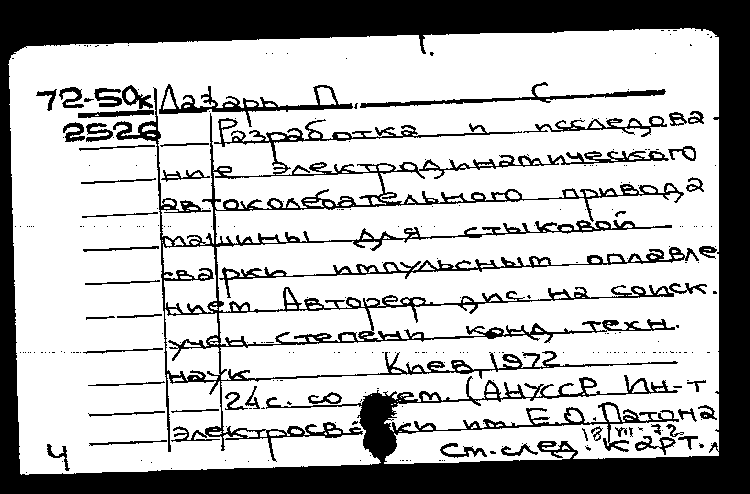 1.
72-50к Лазарь, П. С
2526 Разработка и исследова-
ние электродинамического
автоколебательного привода
машины для стыковой
сварки импульсным оплавле
нием. Автореф. дис. на соиск.
учен. степени канд. техн.
наук Киев, 1972.
24с. со схем. (АН УССР. Ин-т
электросварки им. Е.О. Патона
ч См. след. карт.